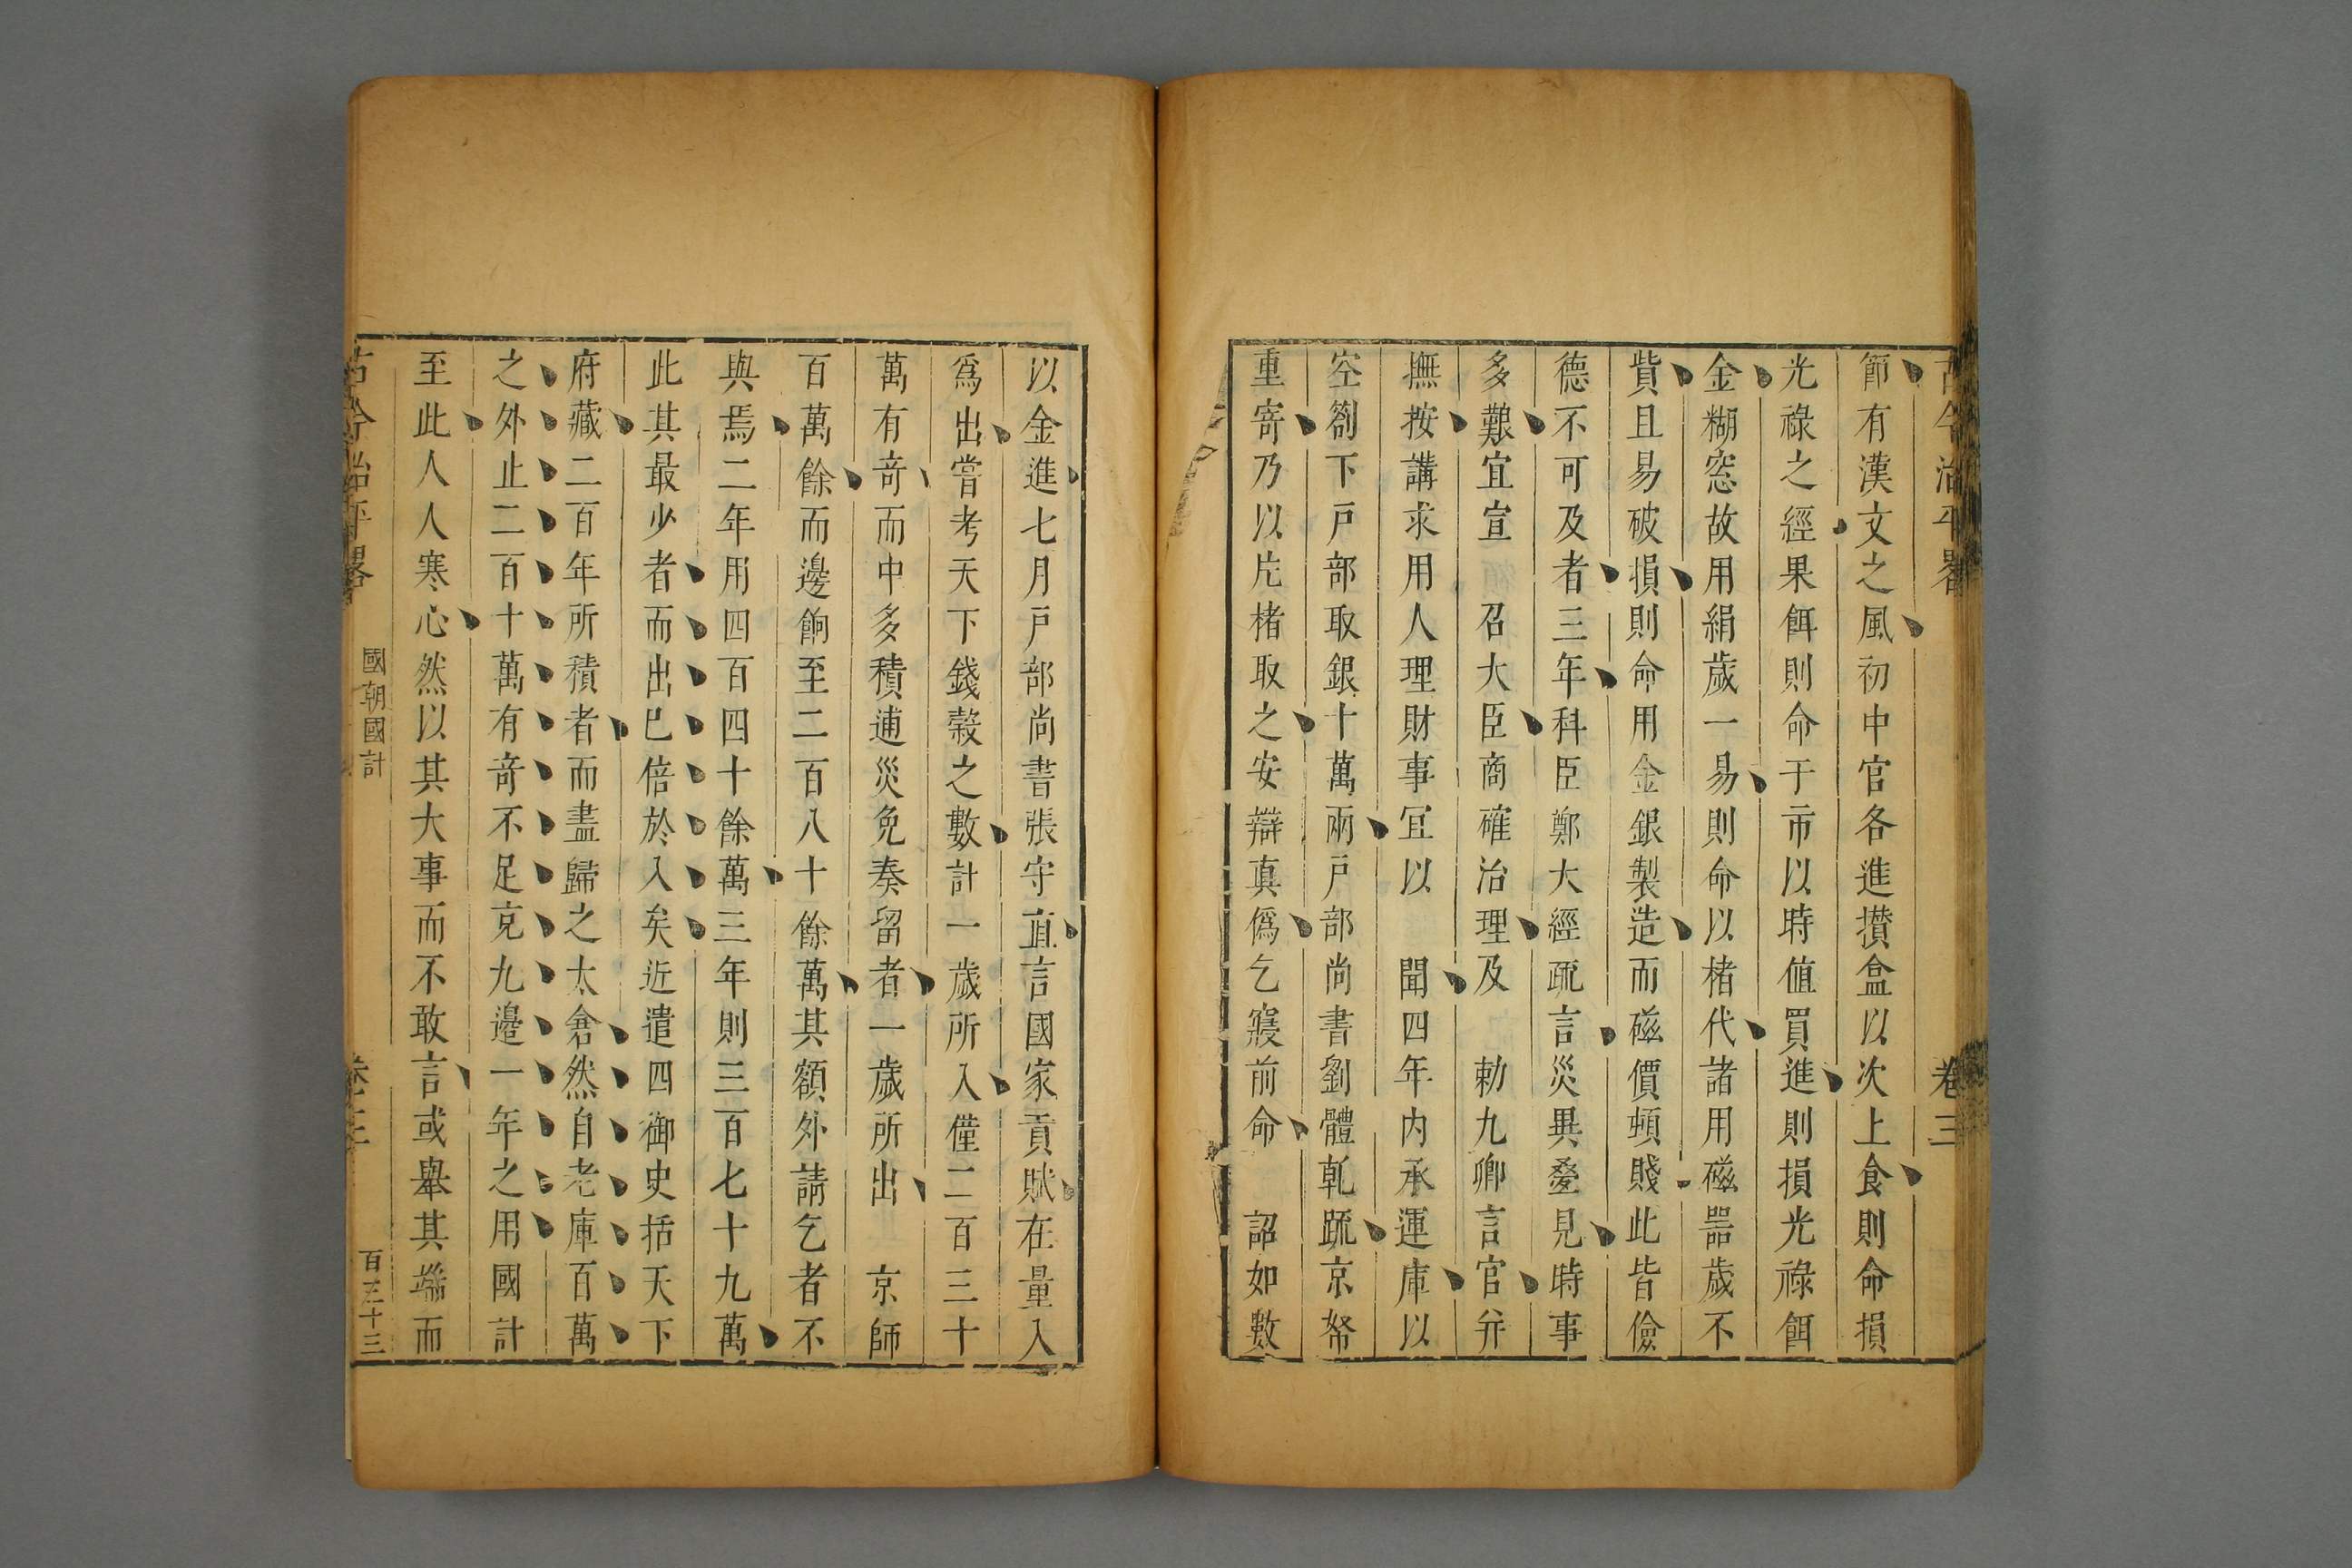 古今治平畧 卷三
節有漢文之風初中官各進攢盒以次上食則命損
光祿之經果餌則命于市以時值買進則損光祿餌
金糊窓故用絹歲一易則命以楮代諸用磁噐歲不
貲且易破損則命用金銀製造而磁價頓賤此皆儉
德不可及者三年科臣鄭大經疏言災異疊見時事
多艱宜宣 召大臣商確治理及 勅九卿言官并
撫按講求用人理財事冝以 聞四年内承運庫以
空劄下戸部取銀十萬兩戸部尚書劉體乾䟽京帑
重寄乃以片楮取之安辯真僞乞寢前命 詔如數
以金進七月戸部尚書張守直言國家貢賦在量入
爲出嘗考天下錢榖之數計一歲所入僅二百三十
萬有竒而中多積逋災免奏留者一歲所出 京師
百萬餘而邊餉至二百八十餘萬其額外請乞者不
與焉二年用四百四十餘萬三年則三百七十九萬
此其最少者而出巳倍於入矣近遣四御史括天下
府藏二百年所積者而盡歸之太倉然自老庫百萬
之外止二百十萬有竒不足充九邉一年之用國計
至此人人寒心然以其大事而不敢言或舉其端而
古今治平畧 國朝國計 卷三 百三十三